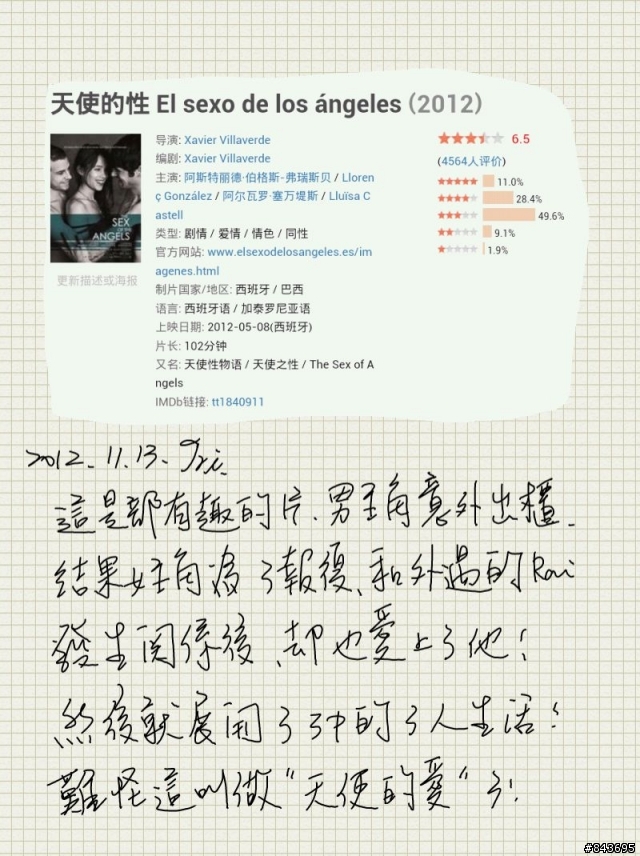 天使的性 El sexo de los ángeles (2012)
SEX
OF THE
ANGELS
更新描述或海报
导演: Xavier Villaverde
编剧: Xavier Villaverde
主演: 阿斯特丽德·伯格斯-弗瑞斯贝 / Lloren
ç González / 阿尔瓦罗·塞万堤斯 / Lluïsa C
astell
类型: 剧情 / 爱情 / 情色 / 同性
官方网站: www.elsexodelosangeles.es/im
agenes.html
制片国家/地区: 西班牙 / 巴西
语言: 西班牙语 / 加泰罗尼亚语
上映日期: 2012-05-08(西班牙)
片长: 102分钟
又名: 天使性物语 / 天使之性 / The Sex of A
ngels
IMDb链接: tt1840911
6.5
(4564人评价)
11.0%
28.4%
49.6%
9.1%
1.9%
2012.11.13. Fri.
這是部有趣的片、男主角意外出櫃.
結果女主角為了報復、和外遇的Rai
發生関係後、却也愛上了他！
然後就展開了3P的3人生活！
難怪這叫做“天使的愛”了！
#843695